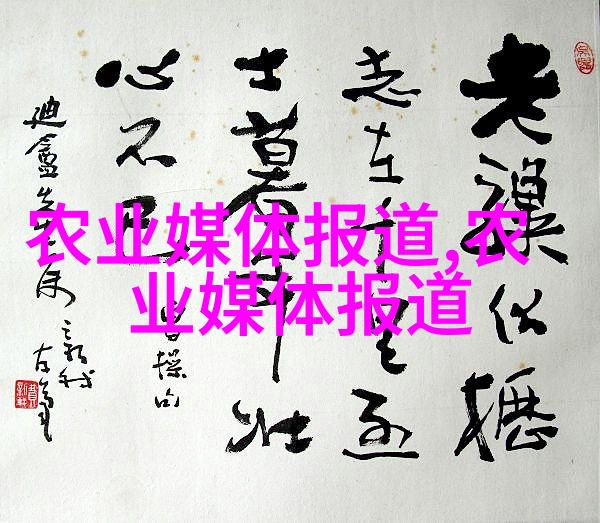 老驥伏櫪
志在千里烈
士暮年壮
心不已
曹操句
农业媒体报道,农
业媒体报道